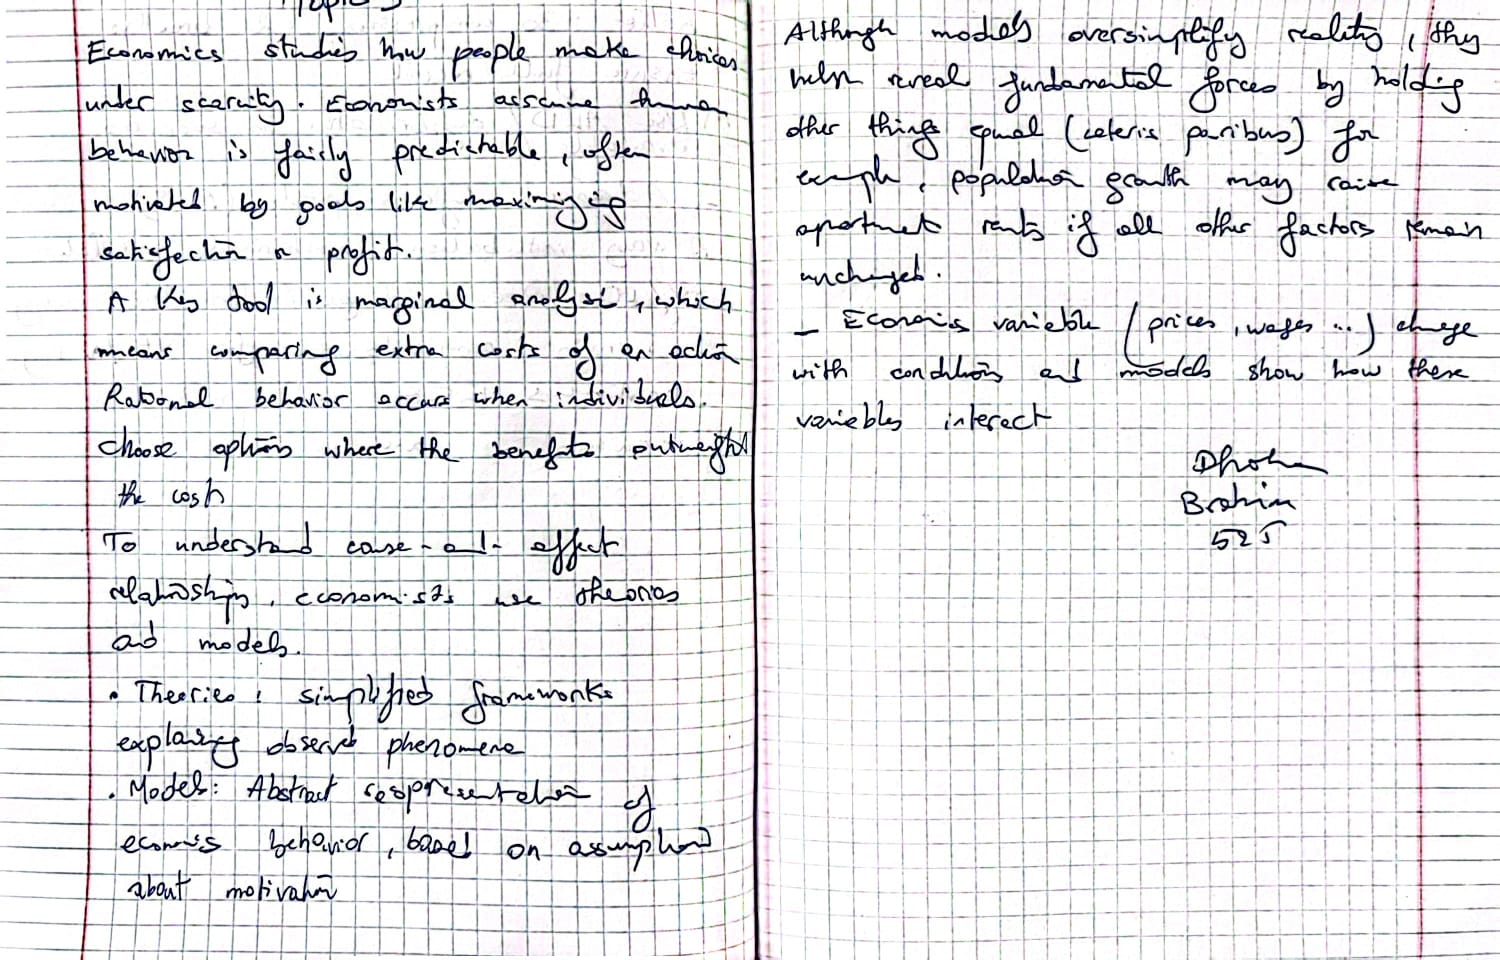 Topic
Economics studies how people make choices
under scarcity. Economists assume human
behavior is fairly predictable, often
motivated by goals like maximizing
satisfaction or profit.
A key tool is marginal analysis, which
means comparing extra costs of an action
Rational behavior occurs when individuals.
choose options where the benefits outweight
the costs
To understand cause-and-effect
relationships, economists use theories
and models.
• Theories: simplified frameworks
explaining observed phenomena
. Models: Abstract respresentation of
economics behavior, based on assumptions
about motivation
Although models oversimplify reality, they
help reveal fundamental forces by holding
other things equal (ceteris paribus) for
example, population growth may raise
apartment rents if all other factors remain
unchanged.
- Economic variable (prices, wages ...) change
with conditions and models show how these
variables interact
Brahim
525